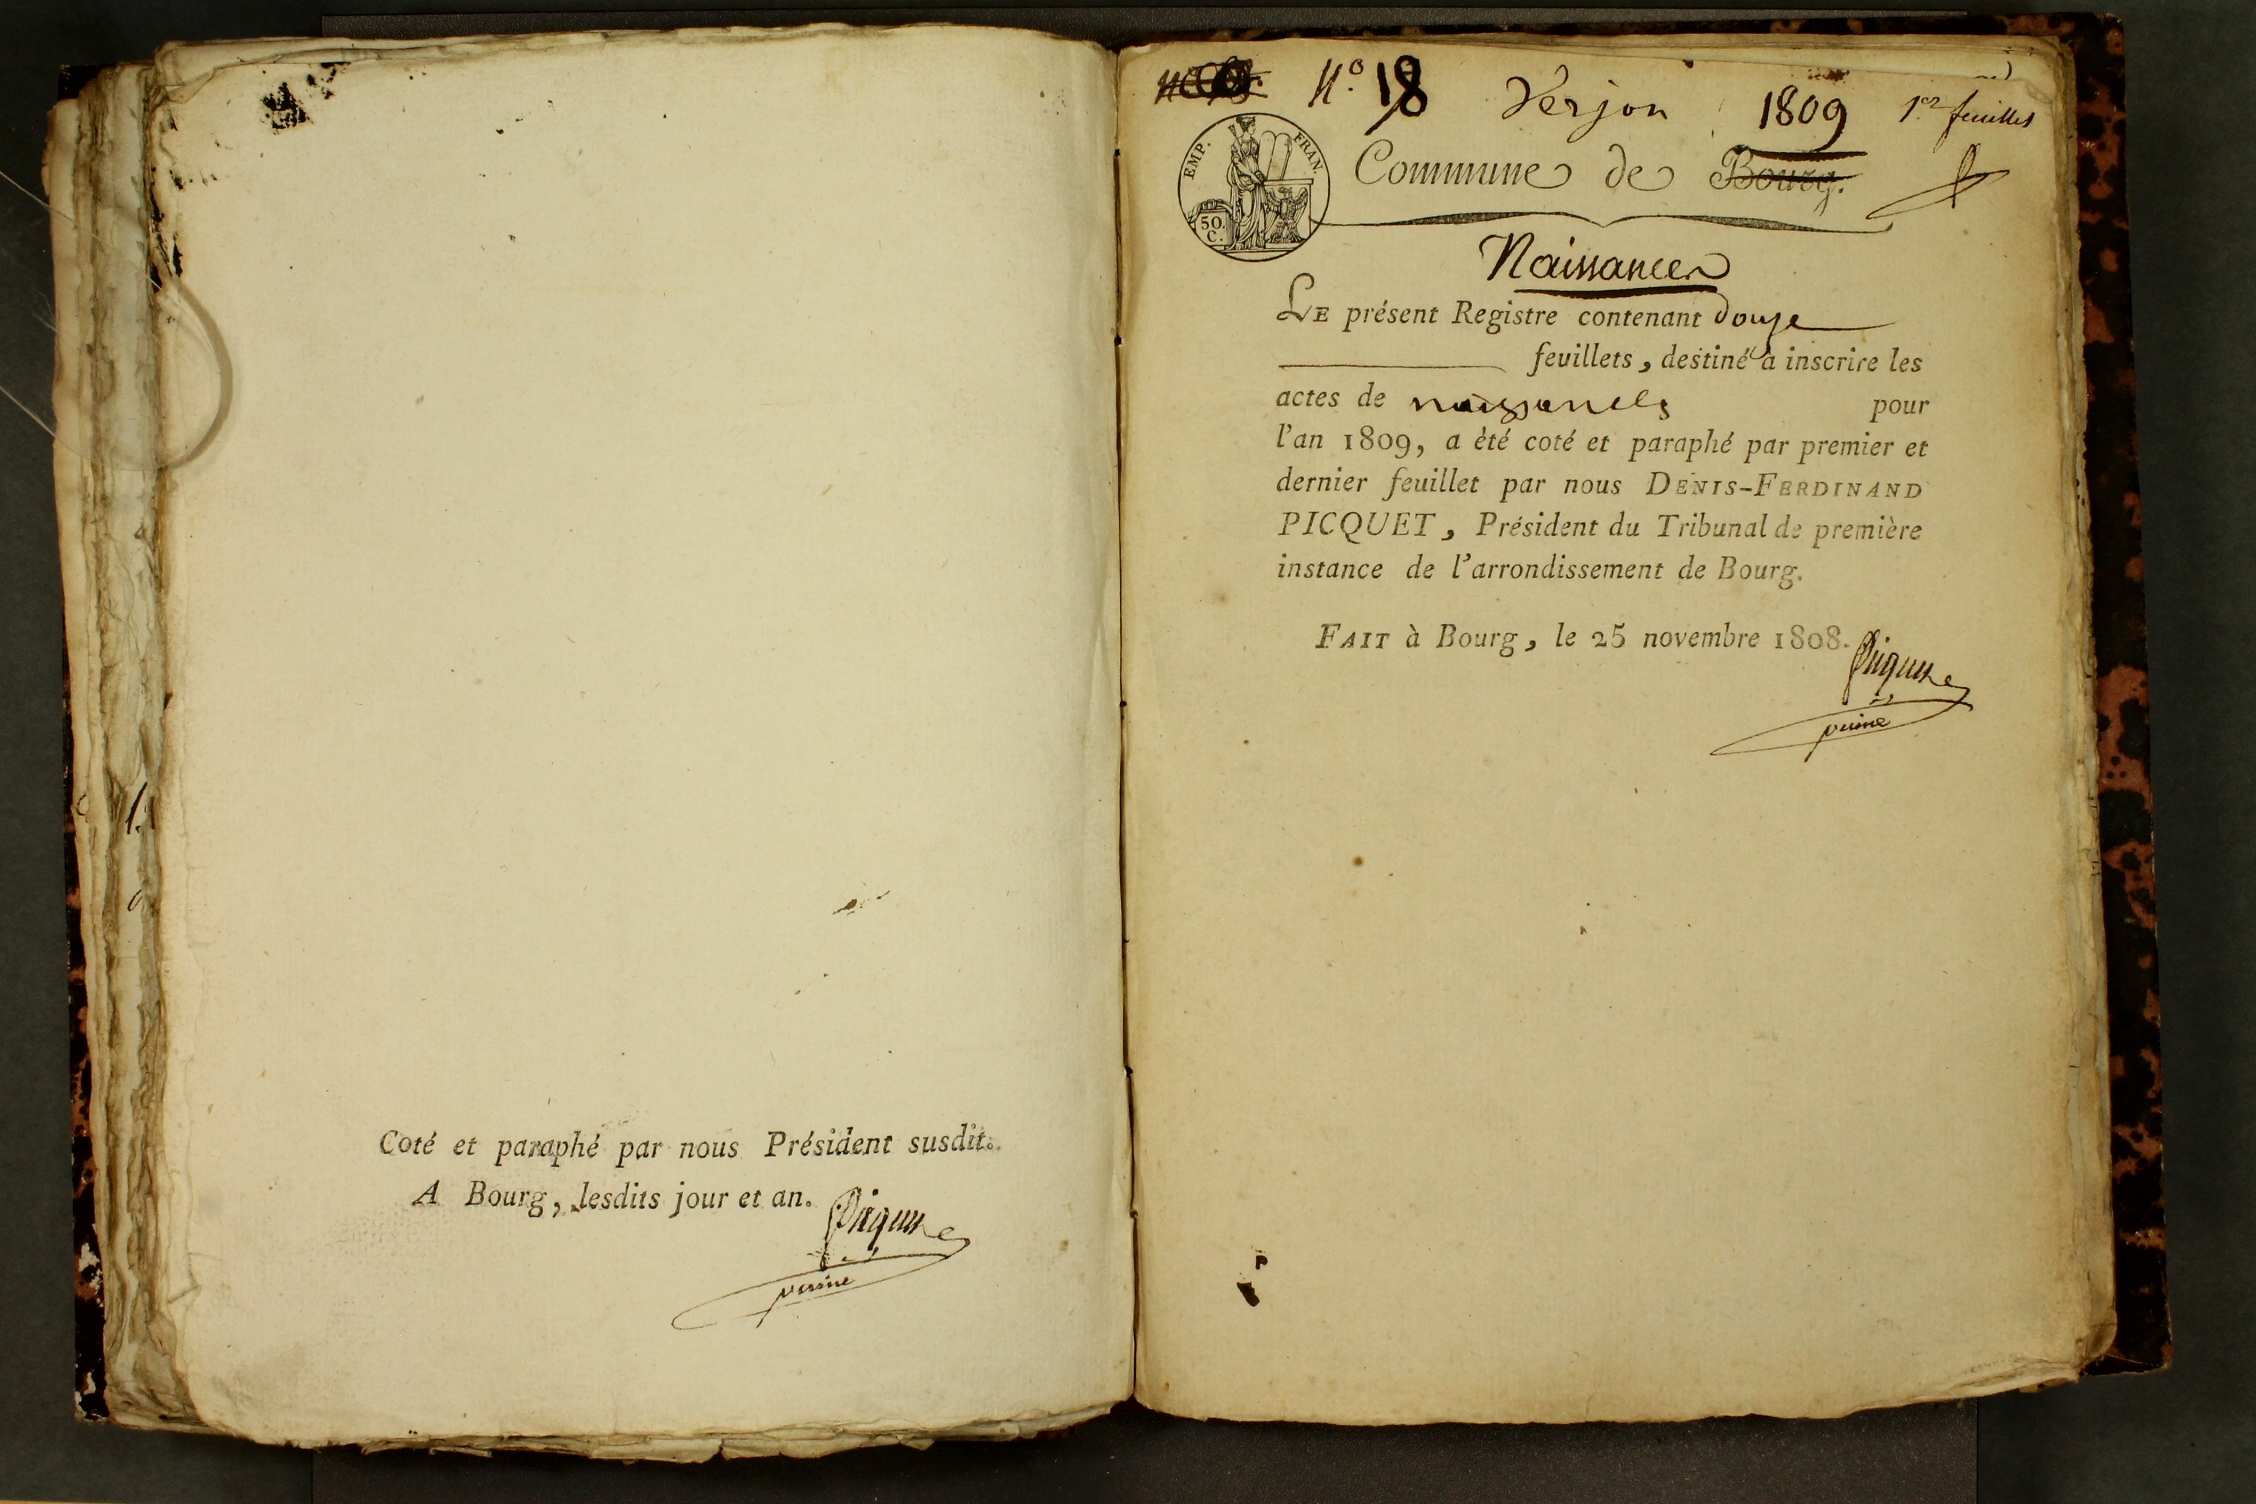 Coté et paraphé par nous Président susdit.
A Bourg, lesdits jour et an.
Picquet
N.º 18 Verjon 1809 1er feuillet
EMP. FRAN.
50.
C.
Commune de Bourg.
Naissances
LE présent Registre contenant douze
feuillets, destiné à inscrire les
actes de naissances pour
l'an 1809, a èté coté et paraphé par premier et
dernier feuillet par nous DENIS-FERDINAND
PICQUET, Président du Tribunal de première
instance de l'arrondissement de Bourg.
FAIT à Bourg, le 25 novembre 1808.
Picquet